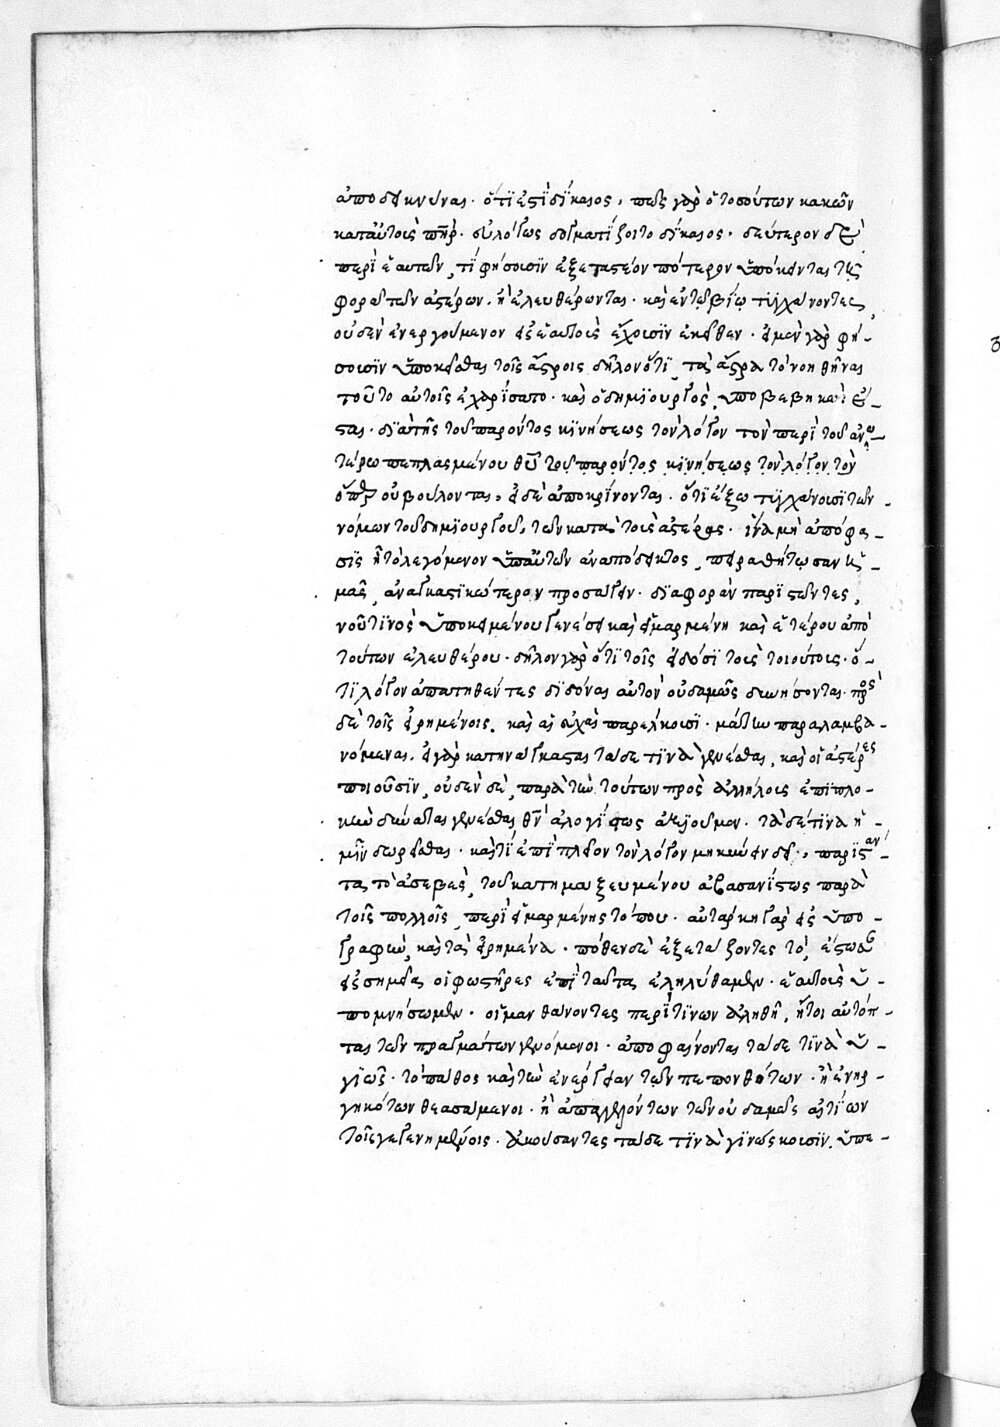 ἀποδεικνύναι· ὅτι ἐστὶ δίκαιος, πῶς γὰρ ὁ τοσούτων κακῶν
κατ' αὐτοὺς πατὴρ· εὐλόγως δογματίζοιτο δίκαιος· δεύτερον δὲ
περὶ ἑαυτῶν, τί φήσουσιν ἐξεταστέον πότερον ὑπόκεινται ταῖς
φοραῖς τῶν ἀστέρων, ἢ ἐλευθέρωνται· καὶ ἐν τῷ βίῳ τυγχάνοντες,
οὐδὲν ἐνεργούμενον εἰς ἑαυτοὺς ἔχουσιν ἐκεῖθεν· εἰ μὲν γὰρ φή-
σουσιν ὑποκεῖσθαι τοῖς ἄστροις δῆλον ὅτι τὰ ἄστρα τὸ νοηθῆναι
τοῦτο αὐτοῖς ἐχαρίσατο· καὶ ὁ δημιουργὸς, ὑποβεβηκὼς ἔ-
σται· διὰ τῆς τοῦ παρόντος κινήσεως τὸν λόγον τὸν περὶ τοῦ ἀνω-
τάρω πεπλασμένου θεοῦ τοῦ παρόντος κινήσεως τὸν λόγον τὸν
ὅπερ οὐ βούλονται, εἰ δὲ ἀποκρίνονται· ὅτι ἔξω τυγχάνουσι τῶν
νόμων τοῦ δημιουργοῦ, τῶν κατὰ τοὺς ἀστέρας· ἵνα μὴ ἀπόφα-
σις ᾖ τὸ λεγόμενον ὑπ' αὐτῶν ἀναπόδεικτος, πειραθήτωσαν ἡ-
μᾶς, ἀναγκαστικώτερον προσάγειν· διαφορὰν παριστῶντες,
νοῦ τινὸς ὑποκειμένου γενέσει καὶ εἱμαρμένῃ καὶ ἑτέρου ἀπὸ
τούτων ἐλευθέρου· δῆλον γὰρ ὅτι τοῖς εἰδόσι τοὺς τοιούτους· ὅ-
τι λόγον ἀπαιτηθέντες διδόναι αὐτὸν οὐδαμῶς δυνήσονται· πρὸς
δὲ τοῖς εἰρημένοις, καὶ αἱ εὐχαὶ παρέλκουσι· μάτην παραλαμβα-
νόμεναι, εἰ γὰρ κατηνάγκασται τάδε τινὰ γενέσθαι, καὶ οἱ ἀστέρες
ποιοῦσιν, οὐδὲν δὲ, παρὰ τὴν τούτων πρὸς ἀλλήλους ἐπιπλο-
κὴν δύναται γενέσθαι θεὸν ἀλογίστως ἀξιοῦμεν· τάδε τινὰ ἡ-
μῖν δωρεῖσθαι· καὶ τί ἐπὶ πλεῖον τὸν λόγον μηκύνειν δεῖ, παριστάν-
τα τὸ ἀσεβὲς, τοῦ κατημαξευμένου ἀβασανίστως παρὰ
τοῖς πολλοῖς, περὶ εἱμαρμένης τόπου· αὐτάρκη γὰρ εἰς ὑπο-
γραφὴν, καὶ τὰ εἰρημένα· πόθεν δὲ ἐξετάζοντες τὸ, ἔστωσαν
εἰς σημεῖα οἱ φωστῆρες ἐπὶ ταῦτα ἐληλύθαμεν· ἑαυτοὺς ὑ-
πομνήσωμεν· οἱ μανθάνοντες περὶ τινῶν ἀληθῆ, ἤτοι αὐτόπ-
ται τῶν πραγμάτων γενόμενοι· ἀποφαίνονται τάδε τινὰ ὑ-
γιῶς· τὸ πάθος καὶ τὴν ἐνέργειαν τῶν πεπονθότων· ἢ ἐνηρ-
γηκότων θεασάμενοι· ἢ ἀπαγγελλόντων τῶν οὐδαμῶς αἰτίων
τοῖς γεγενημένοις· ἀκούσαντες τάδε τινὰ γινώσκουσιν. ὑπε-